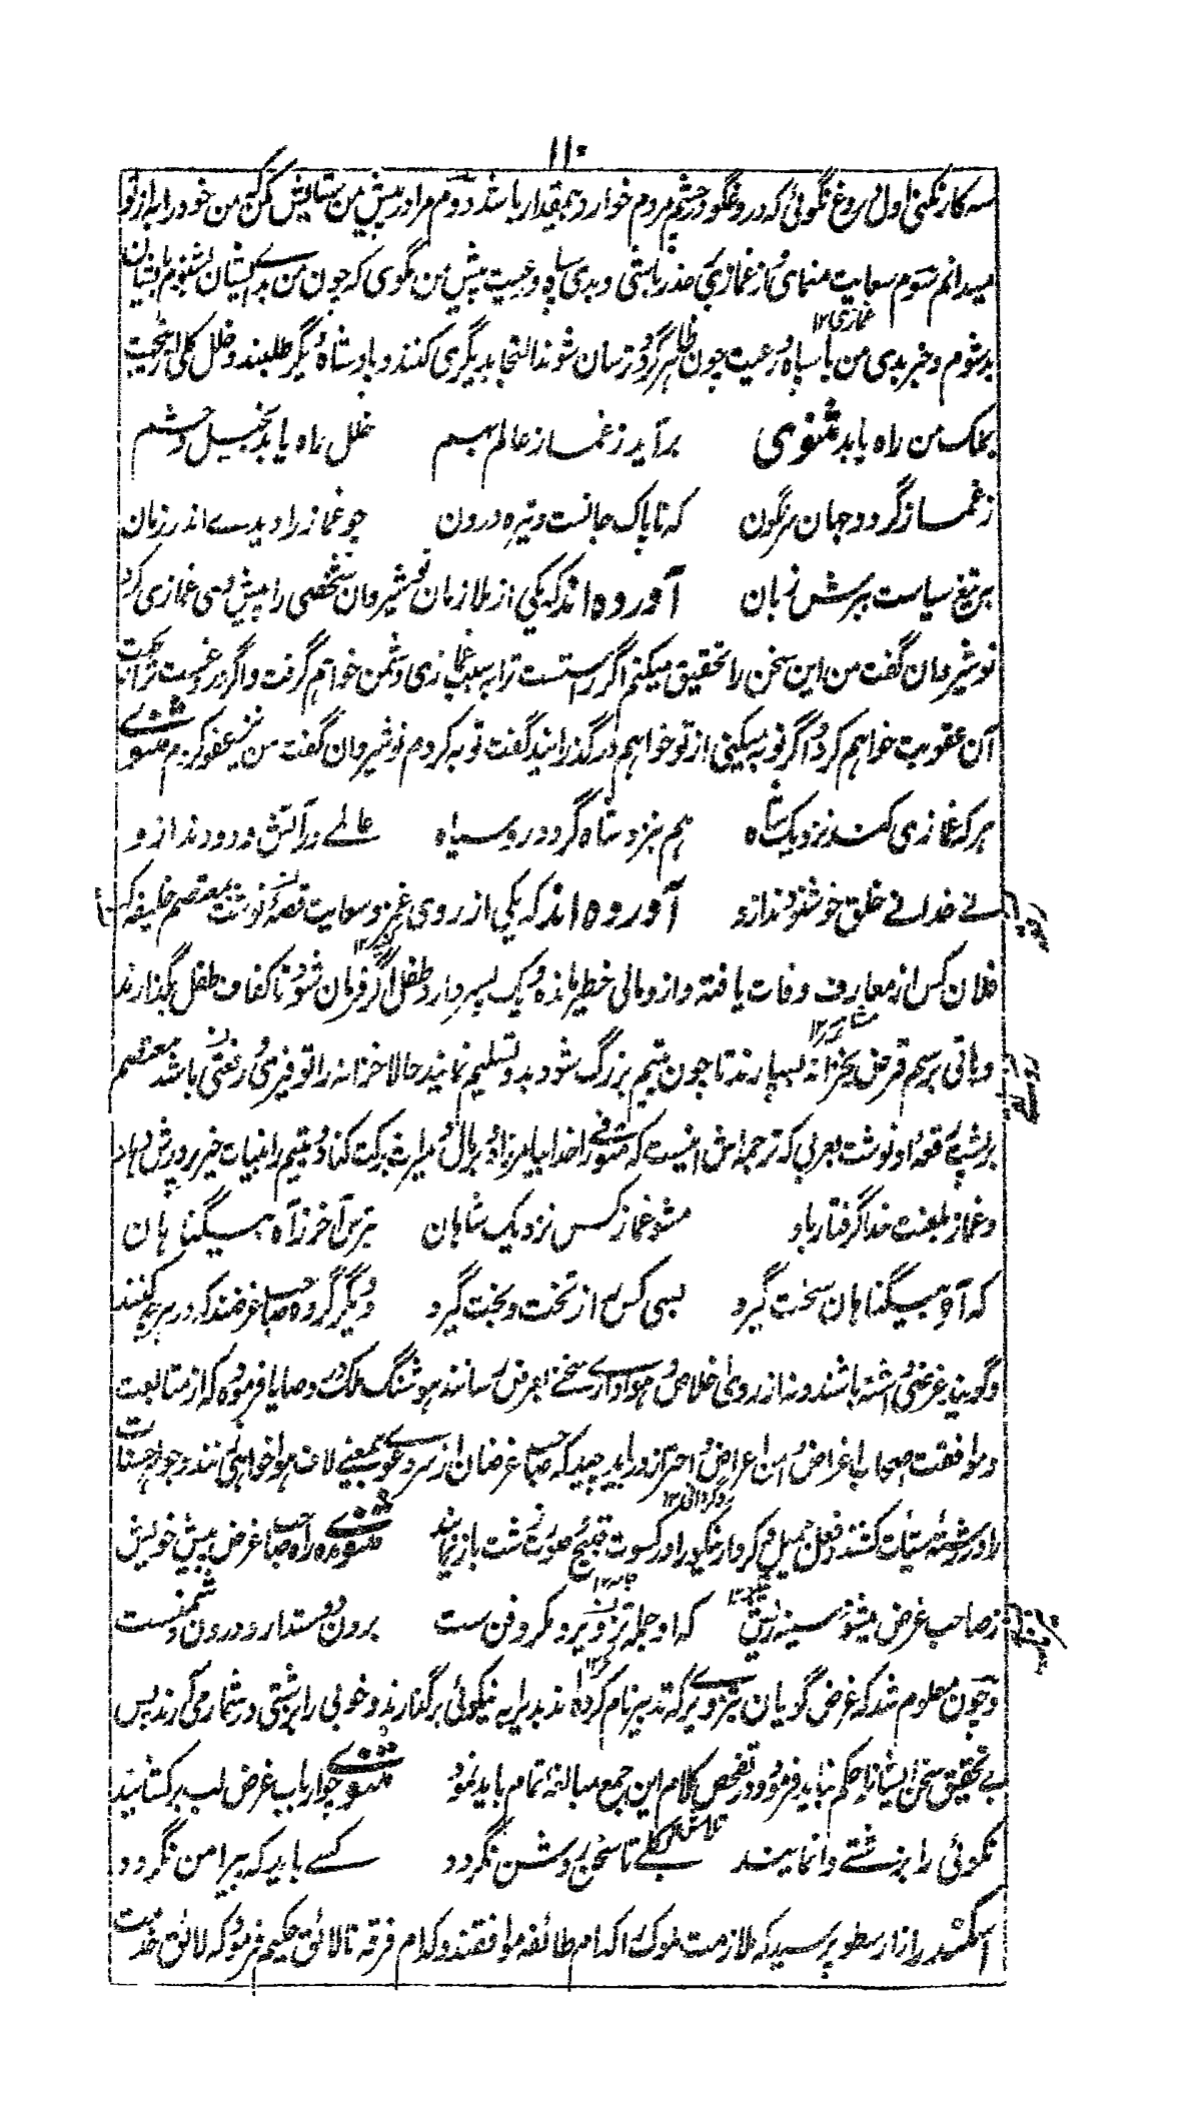 ۱۱۰
سه کار نکنی اول دروغ نگوئی که دروغگو در چشم مردم خوار و بیمقدار باشد دوم مرا در پیش من ستایش مکن من خود را به از تو
میدانم سوم سعایت منمای و از غمازی حذر باشی و بدی سپاه و رعیت پیش من مگوی که چون من بدی ایشان بشنوم با ایشان
غمازی ۱۲
بد شوم و خبر بدی من با سپاه و رعیت چون ظاهر گردد ترسان شوند التجا بدیگری کنند و بادشاه دیگر طلبند و خلل کلی ازین جهت
بملک من راه یابد مثنوی برآید ز غماز عالم بهم خلل راه یابد بخیل و حشم
ز غماز گردد جهان سرنگون که ناپاک جانست و تیره درون چو غماز را دیدی اندر زمان
بتیغ سیاست ببرش زبان آورده اند که یکی از ملازمان نوشیروان شخصی را پیش وی غمازی کرد
نوشیروان گفت من این سخن را تحقیق میکنم اگر راستست ترا بسبب غمازی دشمن خواهم گرفت و اگر دروغست ترا
آن عقوبت خواهم کرد و اگر توبه میکنی از تو خواهم درگذرانید گفت توبه کردم نوشیروان گفت من نیز عفو کردم مثنوی
هر که غمازی کند نزدیک شاه هم بنزد شاه گردد روسیاه عالمی در آتش و دود اندازو
نی خدا نی خلق خوشنود اندازو آورده اند که یکی از روی غمز و سعایت قصه نوشت بمعتصم خلیفه که
فلان کس از معارف وفات یافته و از و مالی خطیر مانده و یک پسر دارد طفل اگر فرمان شود تا کفاف طفل بگذارند
و باقی برسم قرض بخزانه بسپارند تا چون یتیم بزرگ شود بدو تسلیم نمایند حالا خزانه را توفیری و رفعتی باشد معتصم
بر پشت قصه او نوشت بعربی که ترجمه اش اینست که متوفی را خدا بیامرزاد و بر مال میراث برکت کناد و یتیم را بنیات خیر پرورش دهاد
و غماز بلعنت خدا گرفتار باد مشو غماز کس نزدیک شاهان بترس آخر ز آه بیگناهان
که آه بیگناهان سخت گیرد بسی کس را از تخت و بخت گیرد دیگر گروه صاحب غرضند که در هر چه کنند
و گویند غرضی داشته باشند و نه از روی اخلاص و هواداری سخنی بعرض رسانند هوشنگ ملک در وصایا فرموده که از متابعت
و موافقت اصحاب اغراض و اعراض احتراز باید چید که صاحب غرضان از سر دعوی بیمعنی لاف هواخواهی زنند و چون حسنات
روگردانی ۱۲
را در رشته سیئات کشند و فعل جمیل و کردار نیکو را در کسوت قبیح و صورت زشت باز نمایند مثنوی مده راه صاحب غرض پیش خویش
جامه ۱۲
ز صاحب غرض میشود سینه ریش که او جمله تزویر و مکر و فن ست برون دوستدار و درون دشمنست
و چون معلوم شد که غرض گویان تزویری را که تدبیر نام کرده اند بد پیرایه نیکوئی برگذارند و خوبی را بزشتی در شمار می آرند پس
بی تحقیق سخن ایشان حکم نباید فرمود و در تفحص کلام این جمع مبالغه تمام باید نمود مثنوی چو ارباب غرض لب برکشانید
نکوئی را بزشتی وانمایند بکلی تا سخن روشن نگردد کسی باید که پیرامن نگردد
اسکندر از ارسطو پرسید که ملازمت ملوک را کدام طائفه موافقند و کدام فرقه نالائق حکیم فرمود که لائق خدمت